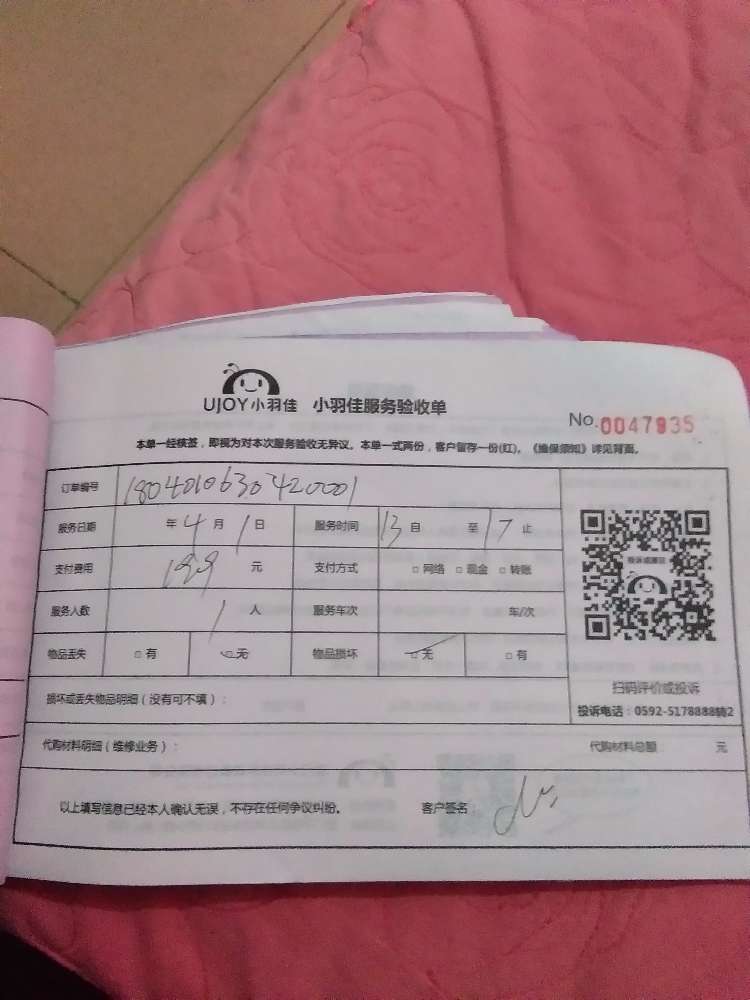 UJOY小羽佳 小羽佳服务验收单
No.0047935
本单一经核签，即视为对本次服务验收无异议。本单一式两份，客户留存一份(红)。《维保须知》详见背面。
订单编号 1804010630420001
服务日期 年 4 月 1 日 服务时间 13 自 至 17 止
支付费用 199 元 支付方式 □ 网络 □ 现金 □ 转账
服务人数 1 人 服务车次 车/次
物品丢失 □ 有 □ 无 物品损坏 □ 无 □ 有
扫码评价或投诉
损坏或丢失物品明细（没有可不填）：
投诉电话：0592-5178888转2
代购材料明细（维修业务）： 代购材料总额 元
以上填写信息已经本人确认无误，不存在任何争议纠纷。 客户签名：